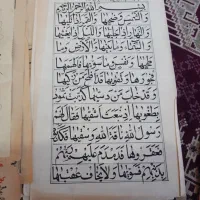 بسم الله الرحمن الرحيم
والشمس وضحيها والقمر اذا تليها
والنهار اذا جليها والليل اذا
يغشيها والسماء وما بنيها والارض وما
طحيها ونفس وما سويها فالهمها
فجورها وتقويها قد افلح من زكيها
وقد خاب من دسيها كذبت ثمود
بطغويها اذ انبعث اشقيها فقال لهم
رسول الله ناقة الله وسقيها فكذبوه
فعقروها فدمدم عليهم ربهم
بذنبهم فسويها ولا يخاف عقبيها